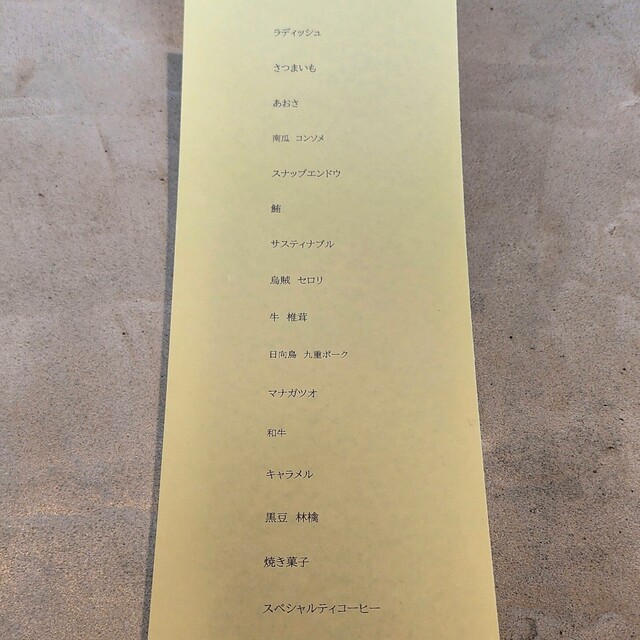 ラディッシュ
さつまいも
あおさ
南瓜 コンソメ
スナップエンドウ
鮪
サスティナブル
烏賊 セロリ
牛 椎茸
日向鳥 九重ポーク
マナガツオ
和牛
キャラメル
黒豆 林檎
焼き菓子
スペシャルティコーヒー